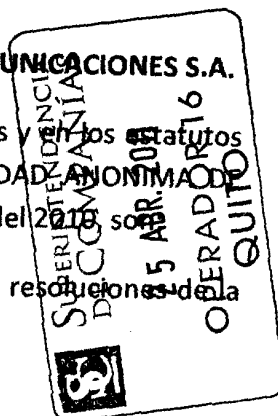 UNICACIONES S.A.
s y en los estatutos
DAD ANONIMA DE
del 2010, son
resoluciones de la
SUPERINTENDENCIA
DE COMPAÑÍAS
25 ABR. 201
OPERADOR 16
QUITO